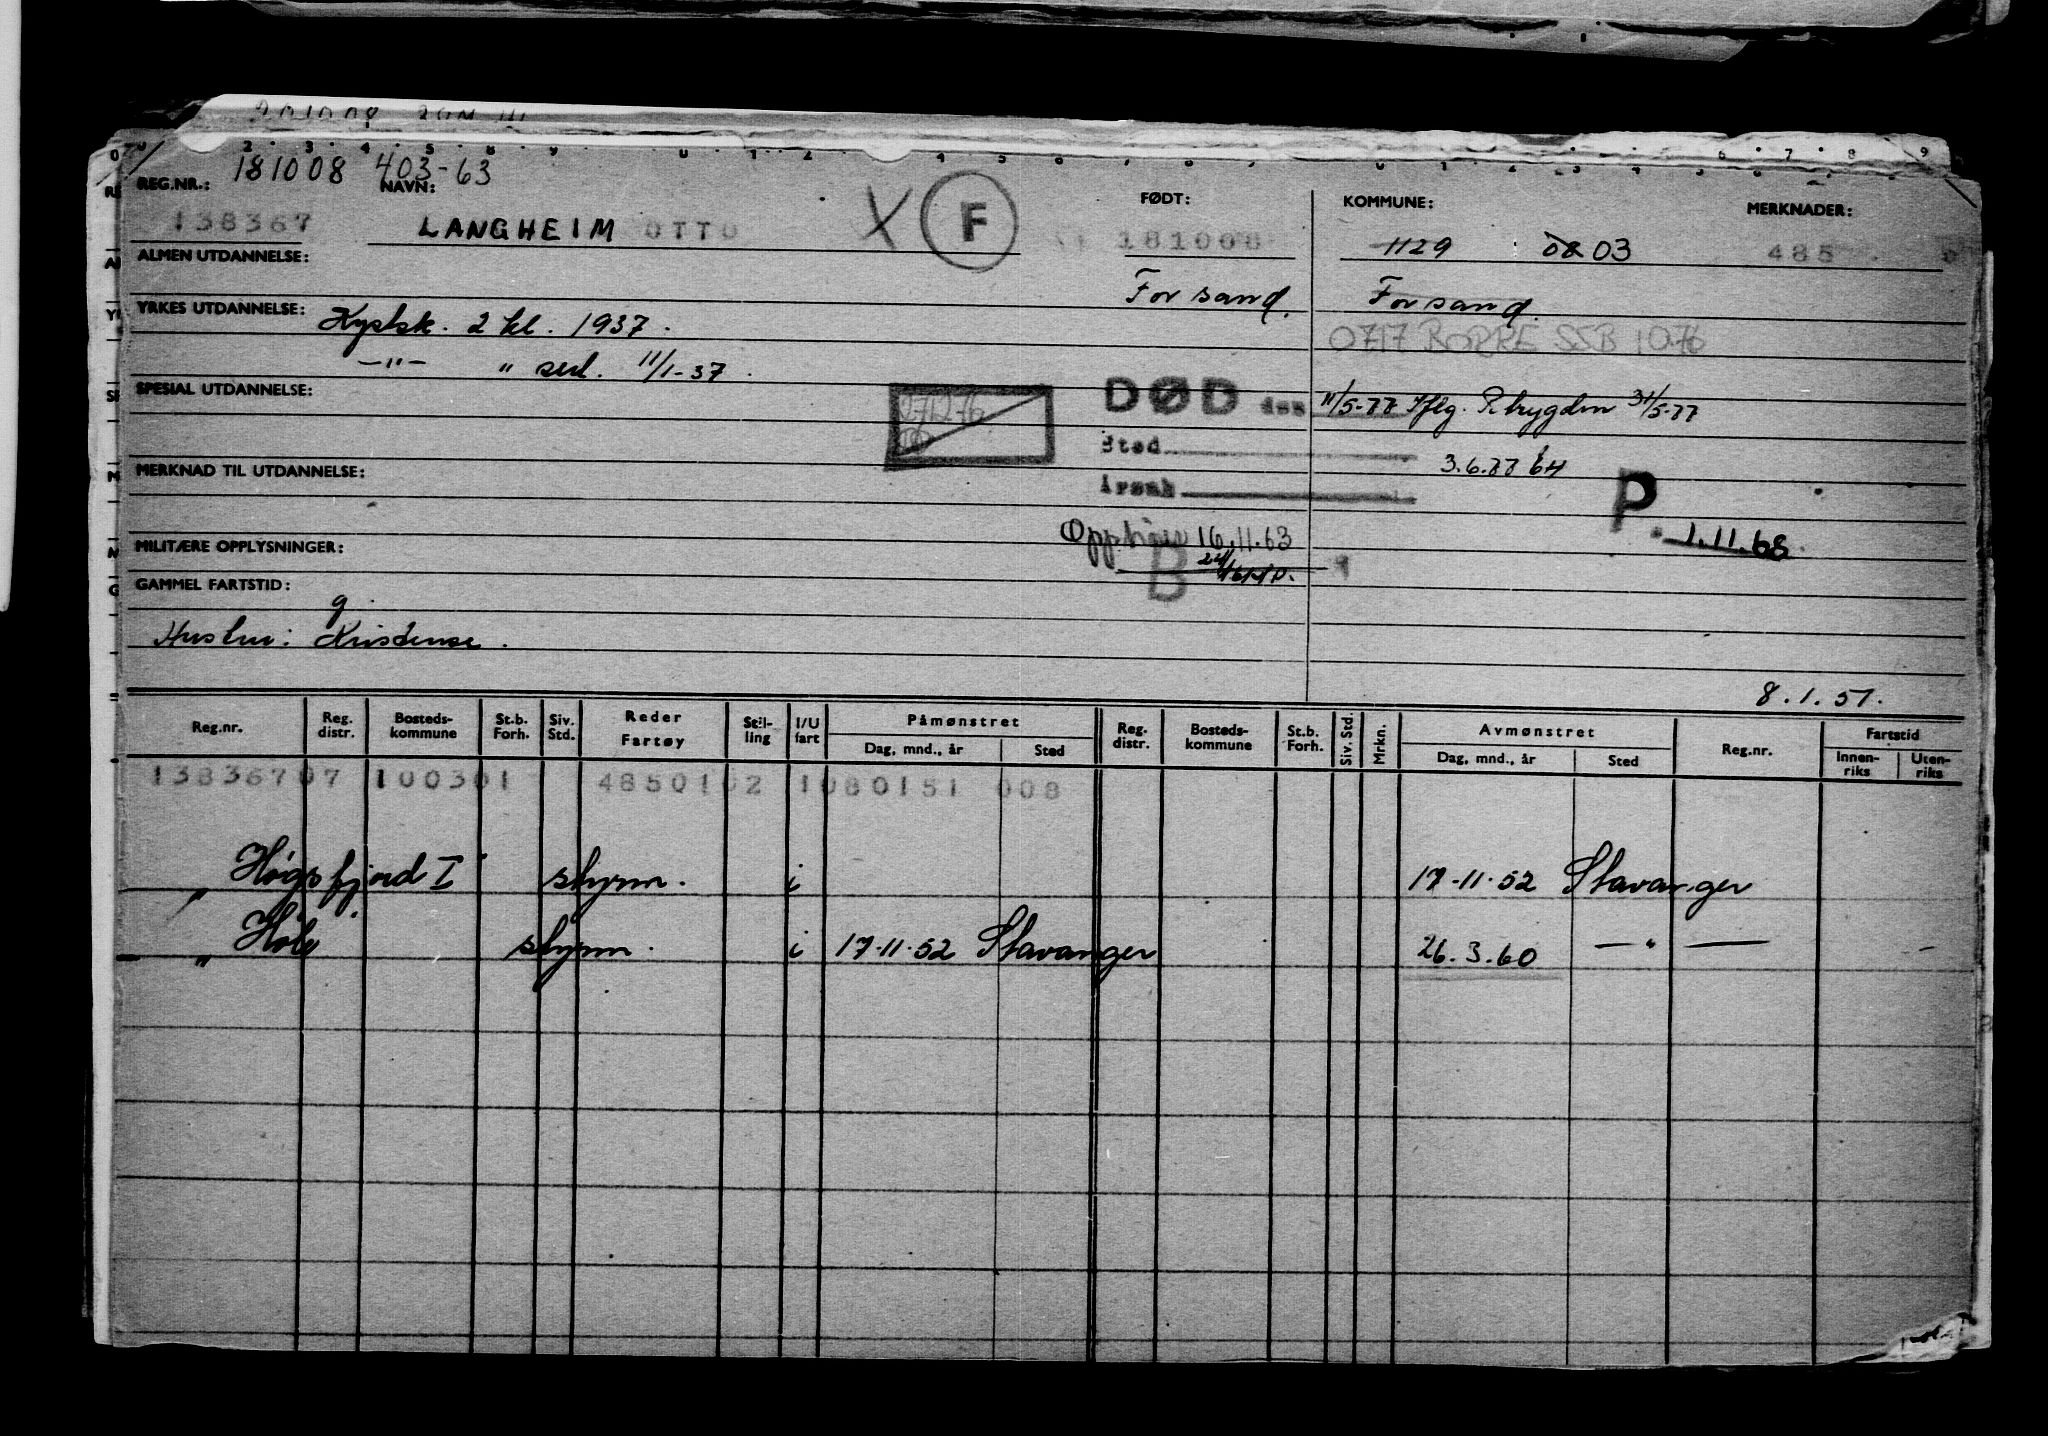 181008 403-63
REG.NR.: NAVN: FØDT: KOMMUNE: MERKNADER:
138367 LANGHEIM OTTO X F 181008 1129 08 03 485
ALMEN UTDANNELSE:
Forsand. Forsand.
YRKES UTDANNELSE: Kystsk. 2 kl. 1937.
0717 BORRE SSB 10.76
—"— " 11/1-37.
SPESIAL UTDANNELSE:
DØD den 11/5-77 Iflg. R.trygden 31/5-77
Sted
3.6.77
MERKNAD TIL UTDANNELSE:
Årsak
P. 1.11.68
Opphører 16.11.63
MILITÆRE OPPLYSNINGER:
B
GAMMEL FARTSTID:
g
Hustru: Kristense.
8.1.51.
Reg.nr. Reg. distr. Bosteds-kommune St.b. Forh. Siv. Std. Reder Fartøy Stil-ling I/U fart Påmønstret Dag, mnd., år Sted Reg. distr. Bosteds-kommune St.b. Forh. Siv. Std. Mrkn. Avmønstret Dag, mnd., år Sted Reg.nr. Fartstid Innen-riks Uten-riks
138367 07 100301 4850102 1080151 008
" Høgsfjord I styrm. i 17-11-52 Stavanger
" Høle styrm. i 17-11-52 Stavanger 26.3.60 — " —